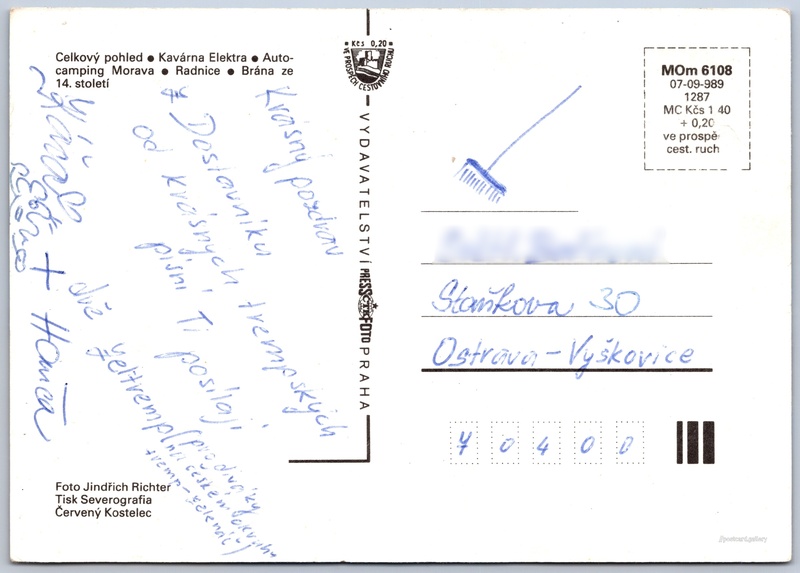 Celkový pohled ● Kavárna Elektra ● Auto-
camping Morava ● Radnice ● Brána ze
14. století
Kčs 0,20
VE PROSPĚCH CESTOVNÍHO RUCHU
MOm 6108
07-09-989
1287
MC Kčs 1 40
+ 0,20
ve prospě-
cest. ruch
Krásný pozdrav
z Dostavníku
od krásných trempských
písní Ti posílají
dvě
(pro diváky
+ Hanča
VYDAVATELSTVÍ PRESSFOTO PRAHA
Staňkova 30
Ostrava-Vyškovice
7 0 4 0 0
Foto Jindřich Richter
Tisk Severografia
Červený Kostelec
//postcard.gallery